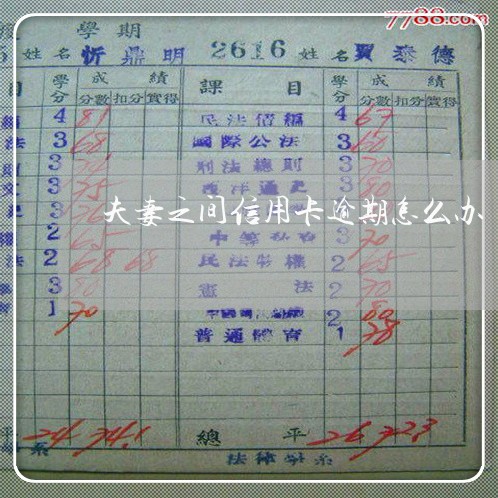 7788.com
學期
姓名 忻鼎明 2616 姓名 賈泰德
目 學分 成績 課目 學分 成績
分數 扣分 實得 分數 扣分 實得
4 81 民法債編 4 67
法 3 68 國際公法 3 60
3 刑法總則 3 70
3 75 西洋通史 3 80
夫妻之间信用卡逾期怎么办
2 65 3 70
法 2 68 68 民法物權 2 65
3 80 憲法 2 70
1 70 2 80
普通體育 1 78
平 24 74.1 總平 26 72.3
系 法律學系